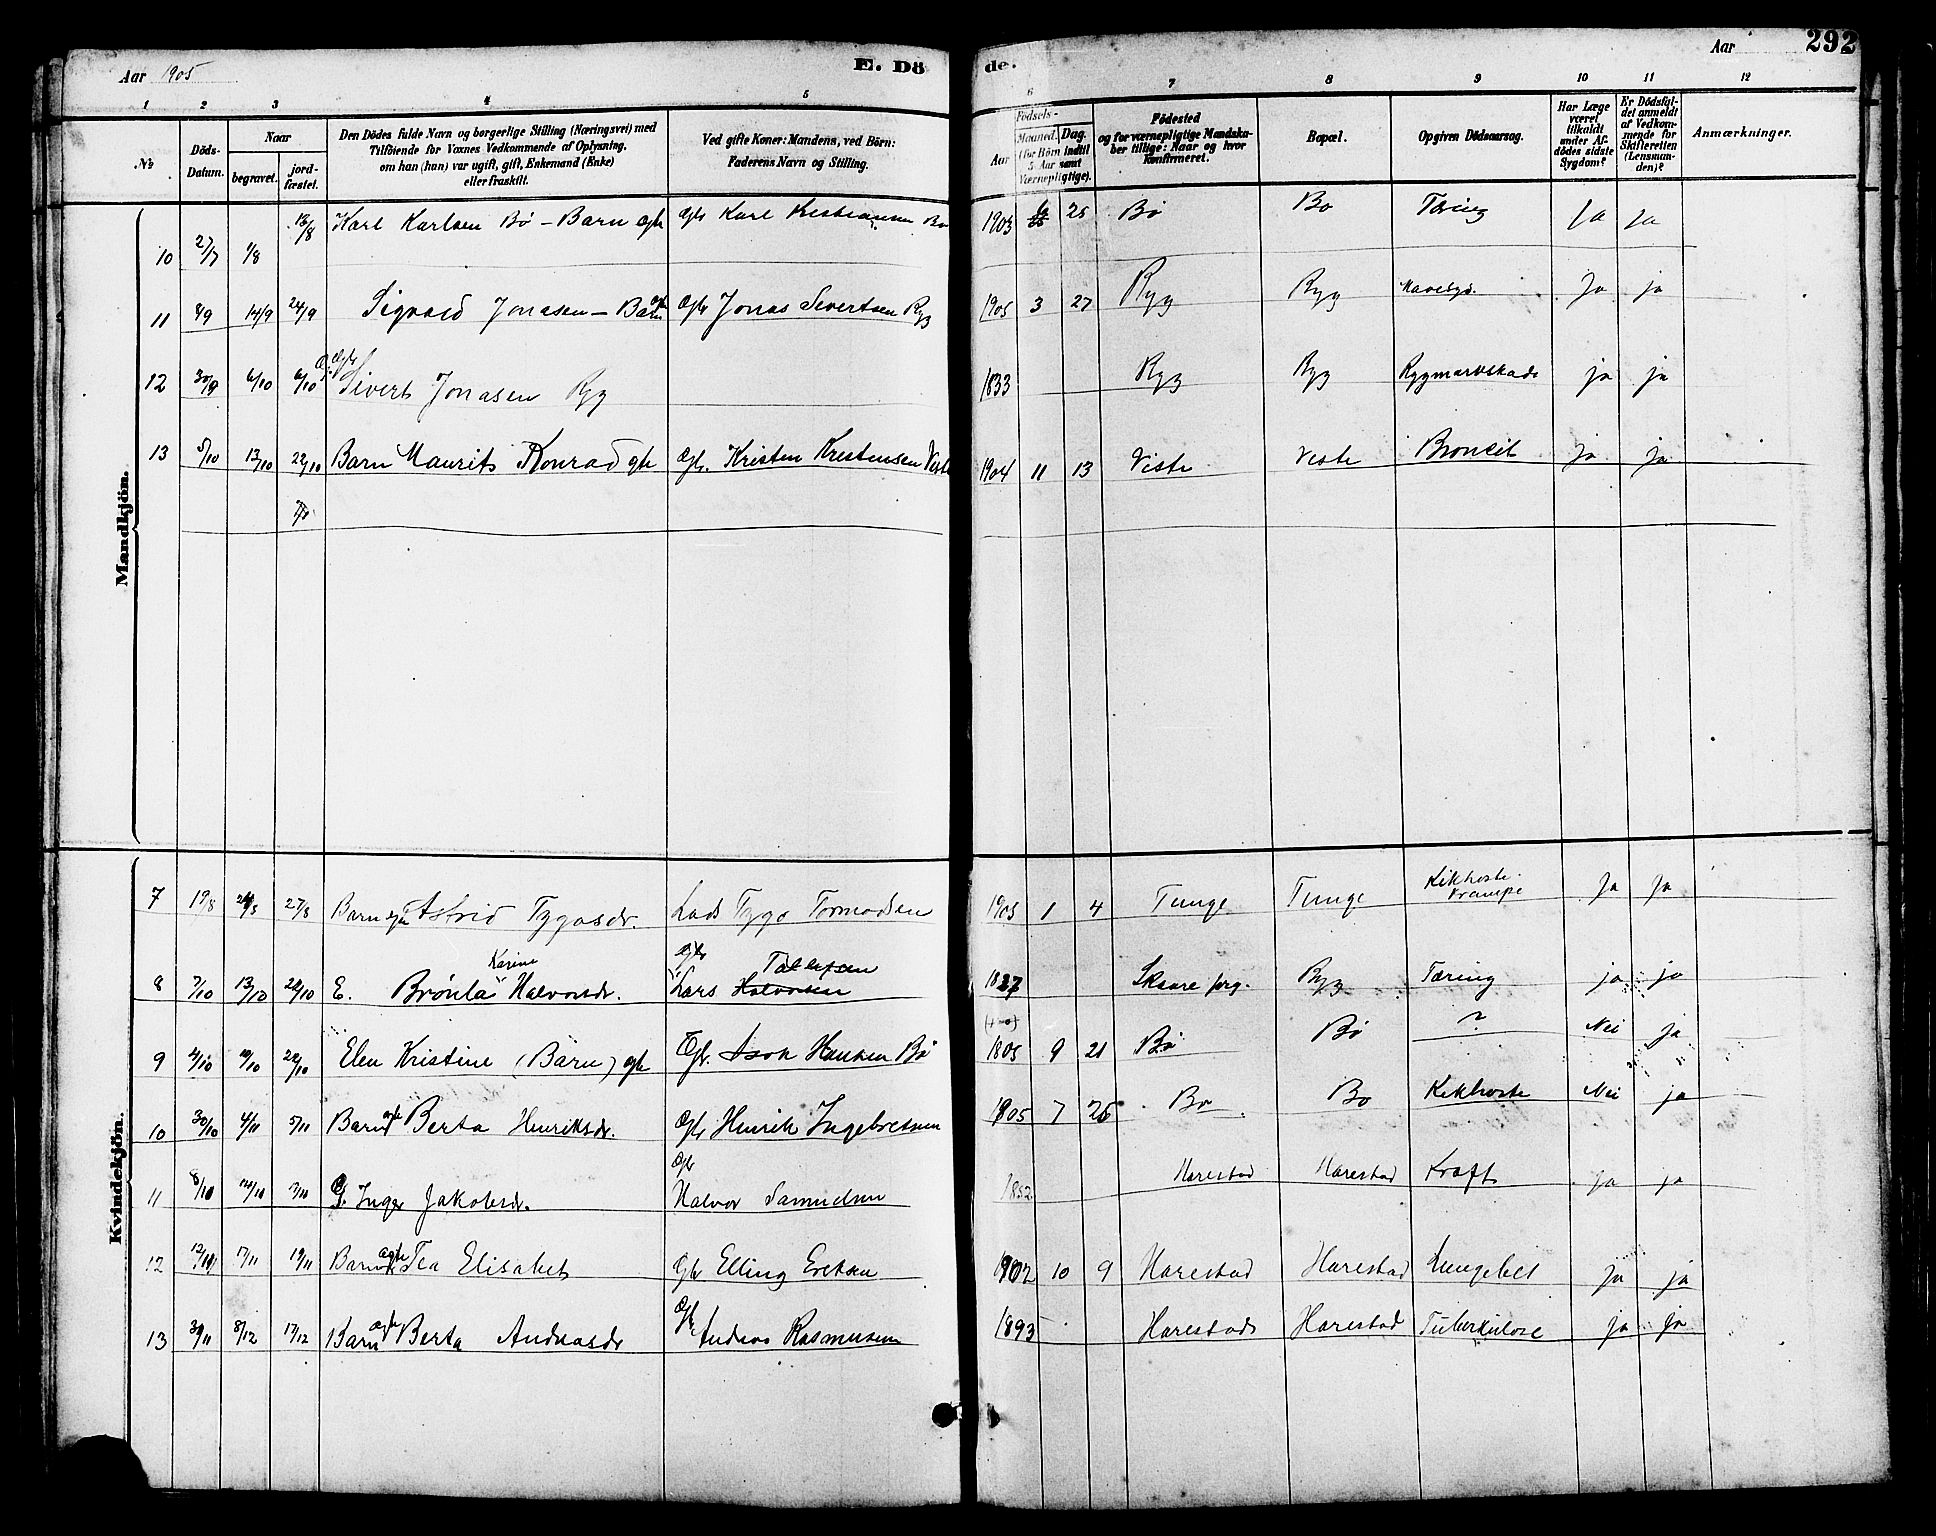 Aar 1905
E. Dö
de.
Aar
292
1 2 3 4 5 6 7 8 9 10 11 12
No
Döds-Datum.
Naar
begravet.
jord-fæstet.
Den Dödes fulde Navn og borgerlige Stilling (Næringsvei) med
Tilföiende for Voxnes Vedkommende af Oplysning,
om han (hun) var ugift, gift, Enkemand (Enke)
eller fraskilt.
Ved gifte Koner: Mandens, ved Börn:
Faderens Navn og Stilling.
Födsels-
Aar
Maaned.
Dag.
(for Börn indtil
5 Aar samt
Værnepligtige).
Födested
og for værnepligtige Mandska-
ber tillige: Naar og hvor
Konfirmeret.
Bopæl.
Opgiven Dödsaarsag.
Har Læge
været
tilkaldt
under Af-
dödes sidste
Sygdom?
Er Dödsfal-
det anmeldt
af Vedkom-
mende for
Skifteretten
(Lensman-
den)?
Anmærkninger.
Mandkjön.
10 27/7 1/8 13/8 Karl Karlsen Bø - Barn ægte Gbr Karl Kristiansen Bø 1903 25 Bø Bø Tæring Ja Ja
11 8/9 14/9 24/9 Sigvald Jonasen - Barn ægte Gbr Jonas Sivertsen Ryg 1905 3 27 Ryg Ryg Mavesyd. Ja ja
12 30/9 6/10 6/10 Sivert Jonasen Ryg 1833 Ryg Ryg Rygmarvskade ja ja
13 5/10 13/10 22/10 Barn Maurits Konrad gte Gbr. Kristen Kristensen Viste 1904 11 13 Viste Viste Broncit ja ja
Kvindekjön.
7 19/8 24/8 27/8 Barn Astrid Tygosdr. Lods Tygo Tormodsen 1905 1 4 Tunge Tunge Kikhoste. Krampe ja ja
8 7/10 13/10 22/10 E. Brønla Karine Halvorsdr. Gbr Lars Halvorsen Tallefsen 1827 Skaare prg. Ryg Tæring ja ja
9 4/10 10/10 22/10 Elen Kristine (Barn) gte Gbr. Isak Hansen Bø 1805 9 21 Bø Bø ? Nei ja
10 30/10 4/11 5/11 Barn ægte Berta Henriksdr. Gbr Henrik Ingebretsen 1805 7 25 Bø Bø Kikhoste Nei ja
11 8/10 14/10 G. Inger Jakobsdr. Gbr Halvor Samuelsen 1852 Harestad Harestad Kræft ja ja
12 17/11 19/11 Barn ægte Tea Elisabet Gbr Elling Eriksen 1902 10 9 Harestad Harestad Lungebet ja ja
13 30/11 8/12 17/12 Barn ægte Berta Andreasdr Gbr Andreas Rasmusen 1893 Harestad Harestad Tuberkulose ja ja